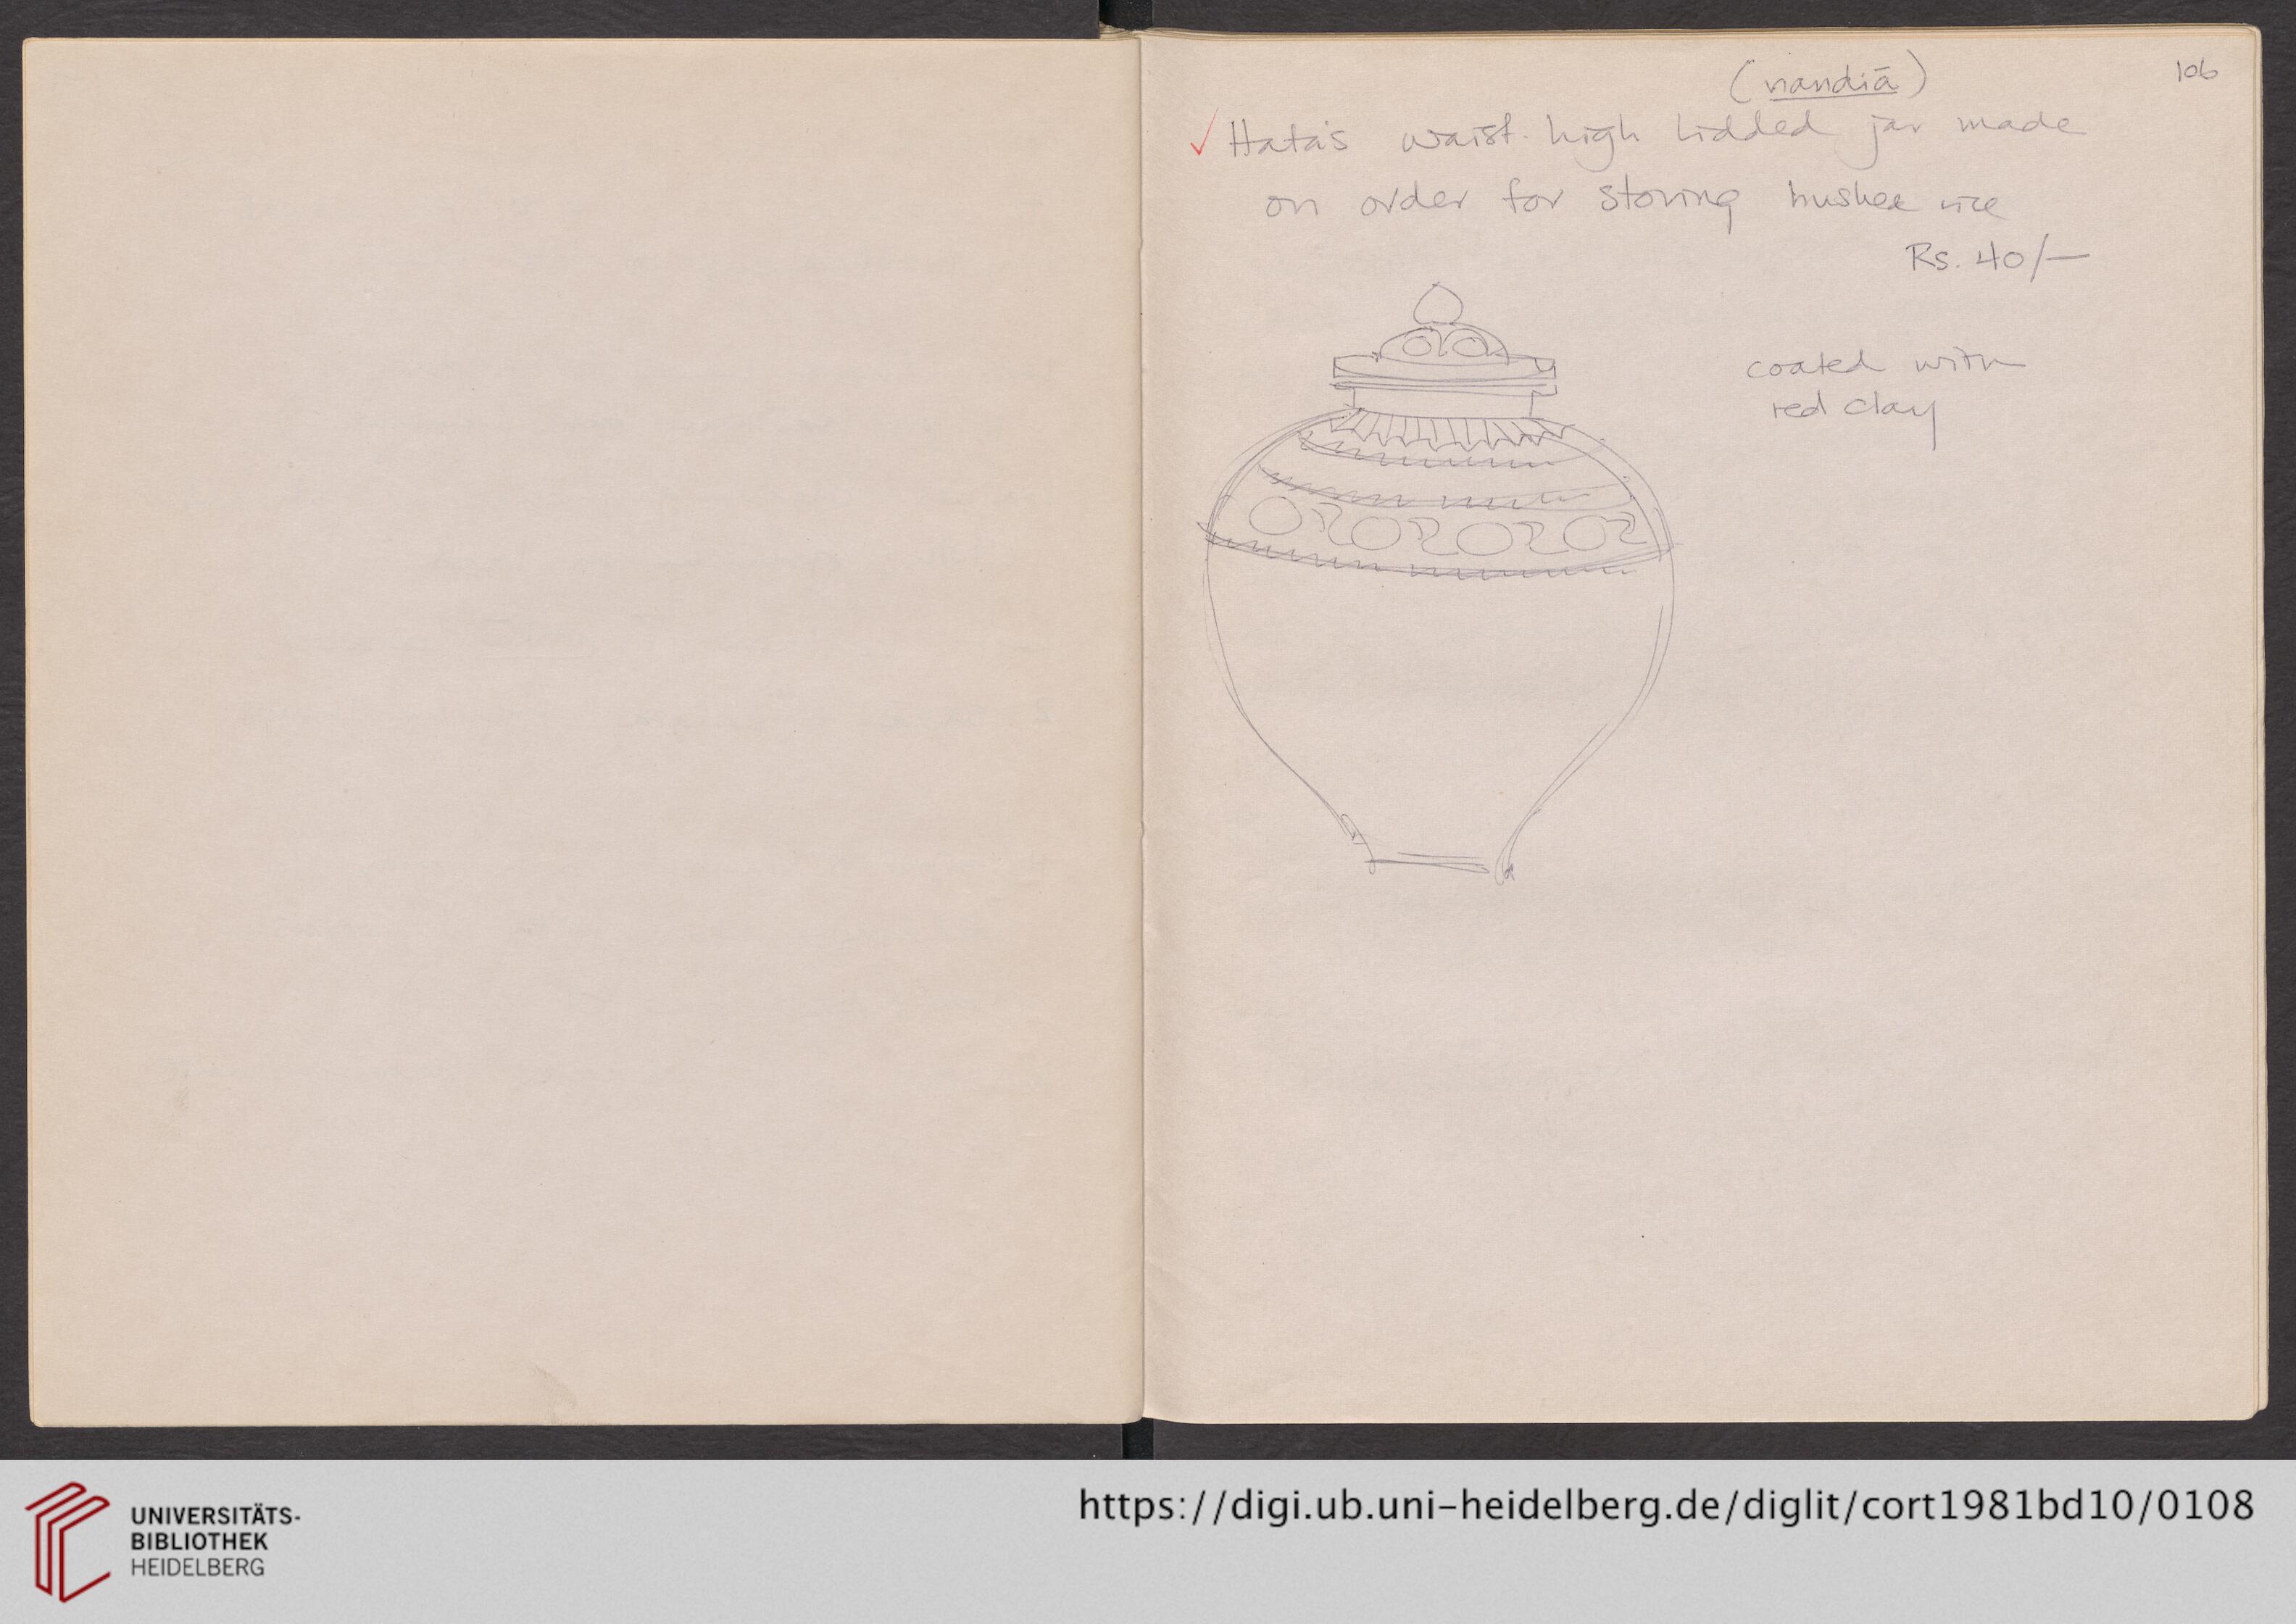 106
(nandiā)
✓ Hata's waist-high lidded jar made
on order for storing husked rice
Rs. 40/—
coated with
red clay
UNIVERSITÄTS-
BIBLIOTHEK
HEIDELBERG
https://digi.ub.uni-heidelberg.de/diglit/cort1981bd10/0108